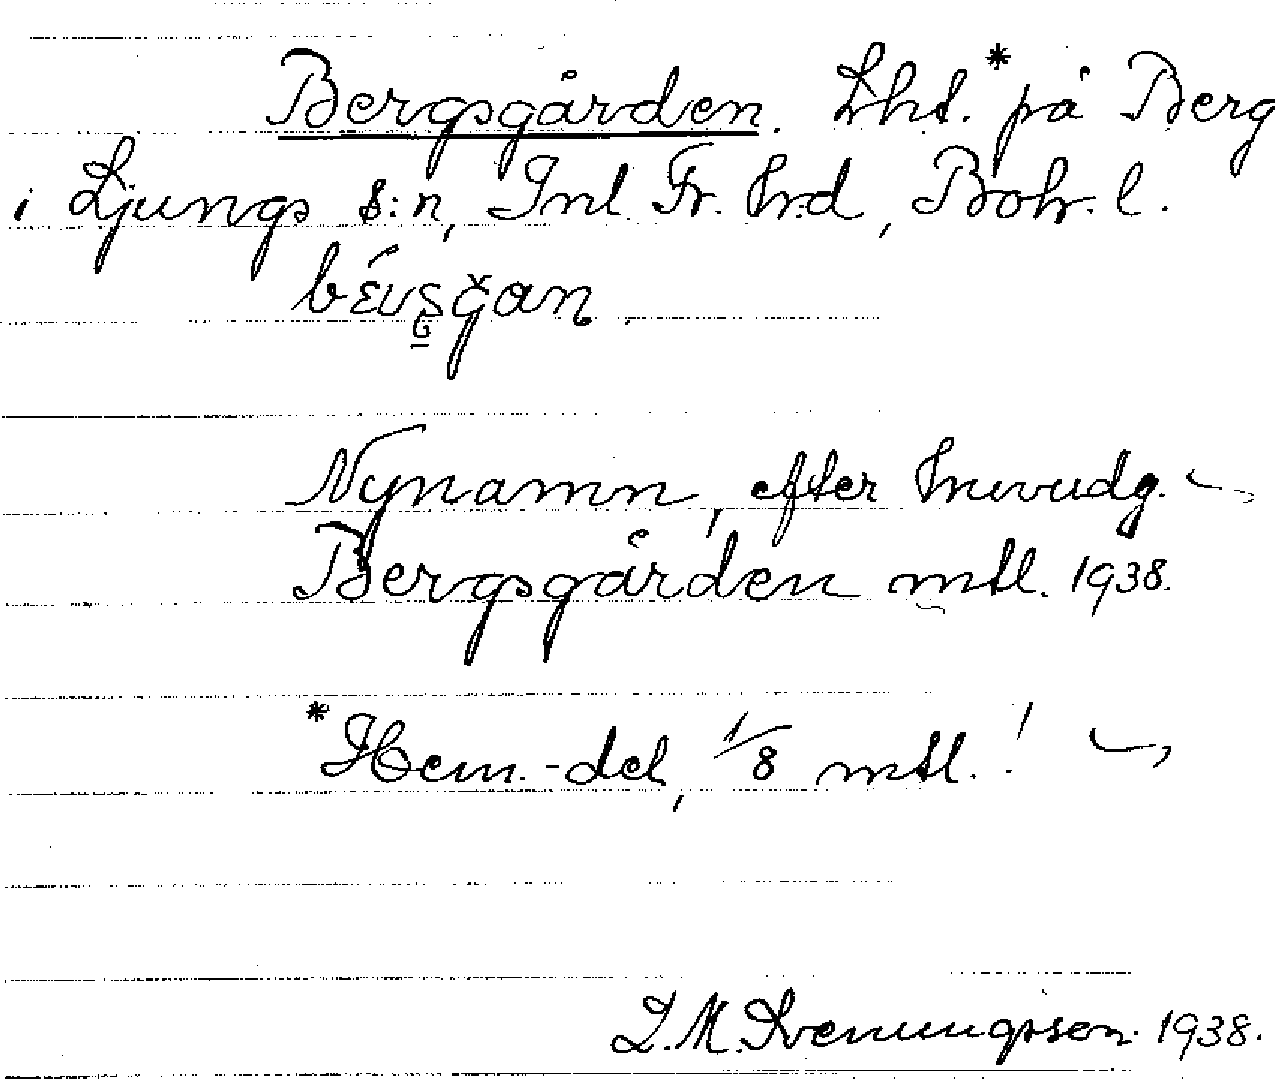 Bergsgården. Lht.* på Berg
i Ljungs s:n, Inl. Fr. hrd, Boh. l.
Nynamn, efter huvudg.
Bergsgården mtl. 1938.
*Hem.-del, 1/8 mtl.!
L.M. Svenungsson. 1938.